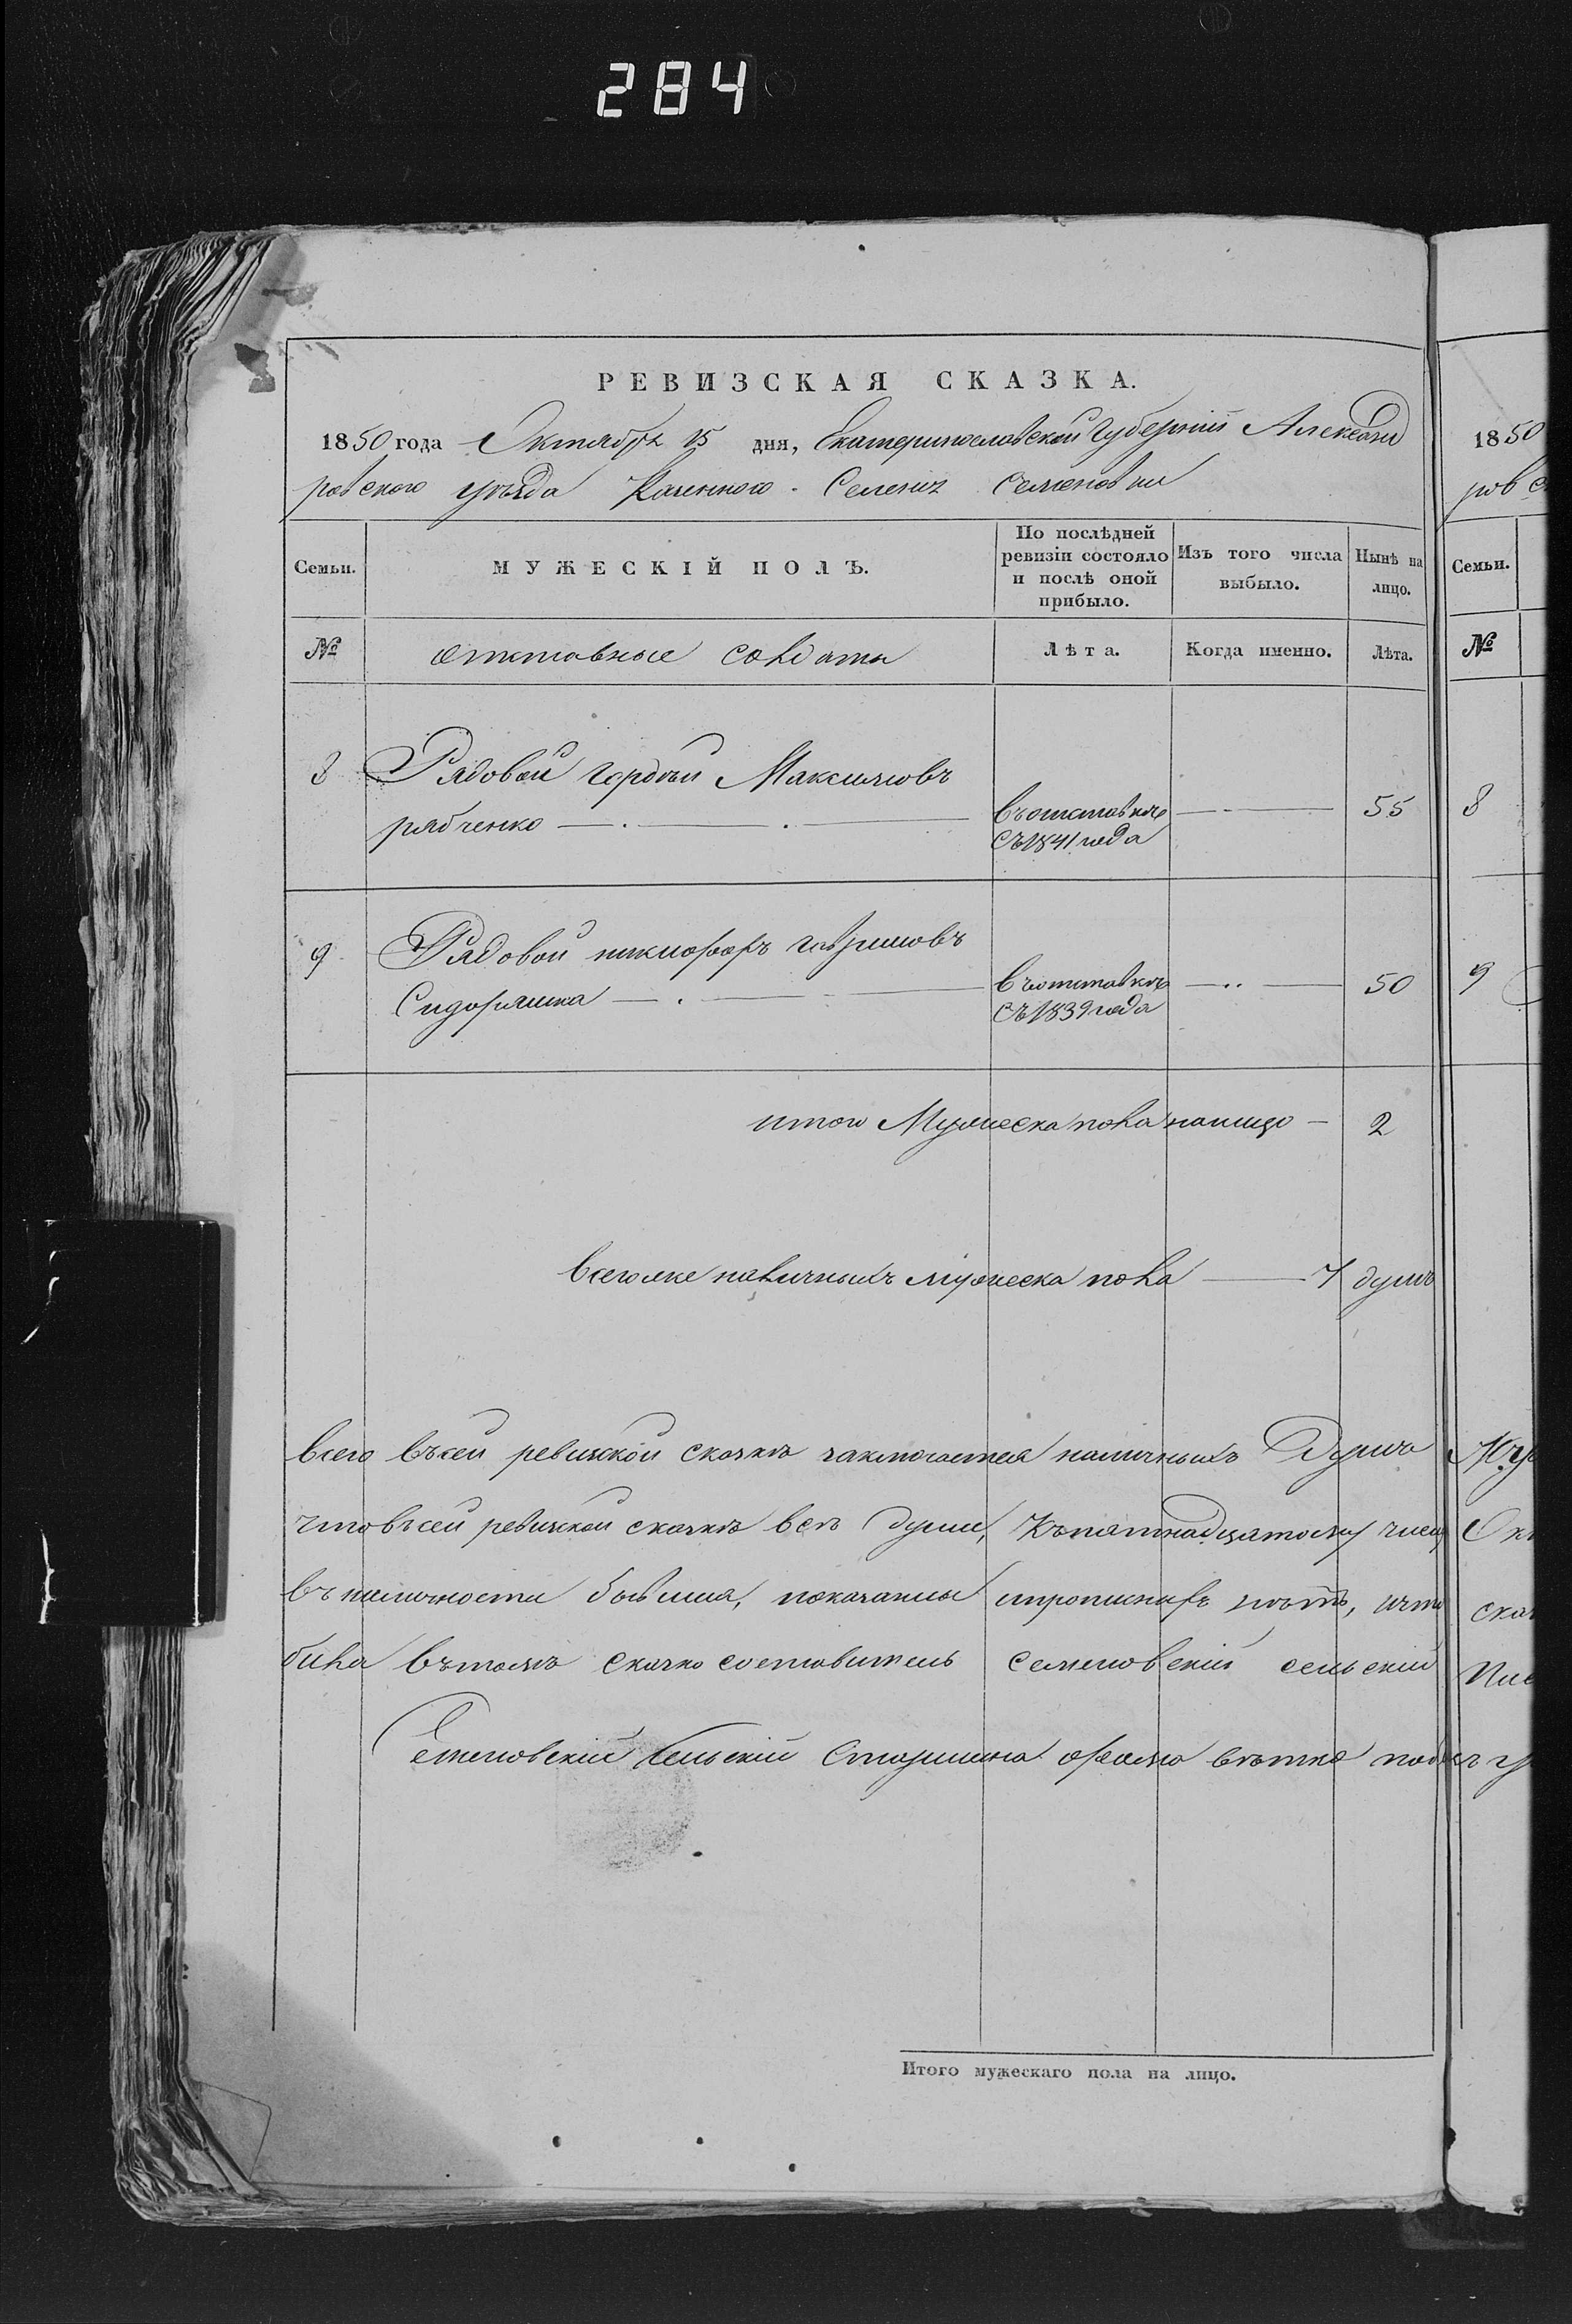 284
РЕВИЗСКАЯ СКАЗКА.
1850 года Октября 15 дня, Екатеринославской Губернии Александ
ровского уезда Казенного Селения Семеновки
Семьи.
МУЖЕСКІЙ ПОЛЪ.
По послѣдней ревизіи состояло и послѣ оной прибыло.
Изъ того числа выбыло.
Нынѣ на лицо.
№
отставные солдаты
Лѣта.
Когда именно.
Лѣта.
8 Рядовой гордѣй Максимовъ
рябченко въотставкѣ съ1841 года 55
9 Рядовой никифоръ гавриловъ
Сидоряшка въотставкѣ съ1839 года 50
итого Мужеска пола налицо — 2
всегоже наличныхъ мужеска пола — 7 душъ
всего въсей ревизкой сказкѣ заключается наличныхъ Душъ
чтовъсей ревизкой сказкѣ всѣ души, Къпятнадцатому числу
въналичности бывшия, показаны ипрописныхъ нѣтъ, ичто
бика вътомъ сказко составитель семеновский сельский
Семеновский Сельский Старшина
Итого мужескаго пола на лицо.
1850
ров
Семьи.
№
8
9
Му
Ок
сказ
Пис